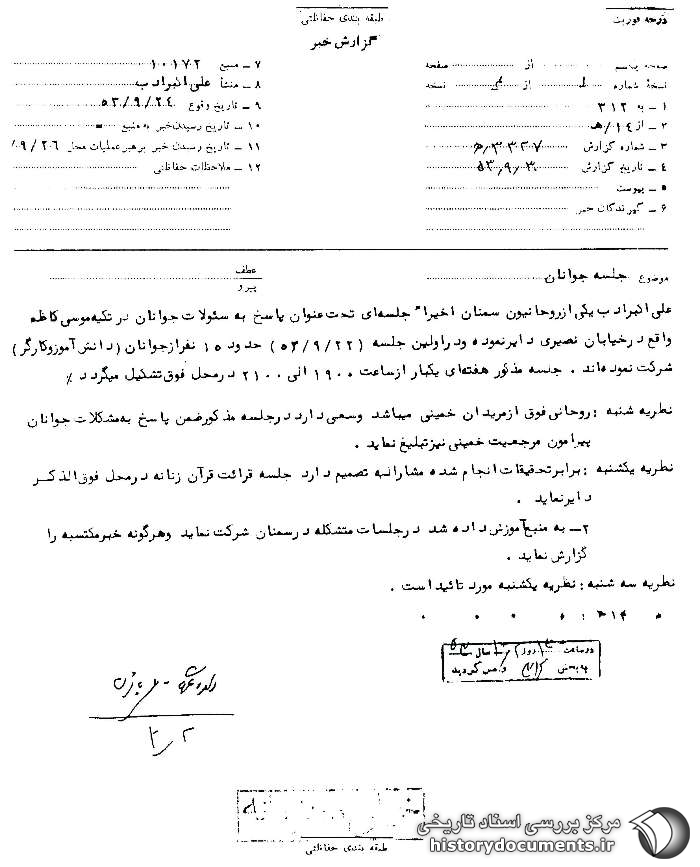 درجه فوریت
طبقه بندی حفاظتی
گزارش خبر
صفحه یکم از صفحه
نسخه شماره ۱ از نسخه
۱ ـ به ۳۱۲
۲ ـ از ۱۴ / ه‍
۳ ـ شماره گزارش
۴ ـ تاریخ گزارش ۵۳٫۹٫۳۰
۵ ـ پیوست
۶ ـ گیرندگان خبر
۷ ـ منبع ۱۰۱۷۲
۸ ـ منشأ علی اکبرادب
۹ ـ تاریخ وقوع ۵۳/۹/۲۴
۱۰ ـ تاریخ رسیدن خبر به منبع
۱۱ ـ تاریخ رسیدن خبر برهبر عملیات محل ۹/۲۶
۱۲ ـ ملاحظات حفاظتی
موضوع جلسه جوانان
عطف
پیرو
علی اکبرادب یکی ازروحانیون سمنان اخیراً جلسه‌ای تحت‌عنوان پاسخ به سئولات جوانان در تکیه‌موسی‌کاظم
واقع درخیابان نصیری دایرنموده ودراولین جلسه (۵۳/۹/۲۲) حدود ۱۵ نفرازجوانان (دانش آموزوکارگر)
شرکت نموده‌اند . جلسه مذکور هفته‌ای یکبار ازساعت ۱۹۰۰ الی ۲۱۰۰ درمحل فوق‌تشکیل میگردد ٪
نظریه شنبه : روحانی‌فوق ازمریدان خمینی میباشد وسعی‌دارد درجلسه مذکورضمن پاسخ به‌مشکلات جوانان
پیرامون مرجعیت خمینی نیزتبلیغ نماید .
نظریه یکشنبه : برابرتحقیقات انجام شده مشارالیه تصمیم دارد جلسه قرائت قرآن زنانه درمحل فوق‌الذکر
دایرنماید .
۲ـ به منبع‌آموزش‌داده شد درجلسات متشکله درسمنان شرکت نماید وهرگونه خبرمکتسبه را
گزارش نماید .
نظریه سه شنبه : نظریه یکشنبه مورد تائیداست .
در ساعت روز سال
به بخش واصل گردید
طبقه بندی حفاظتی
مرکز بررسی اسناد تاریخی
historydocuments.ir